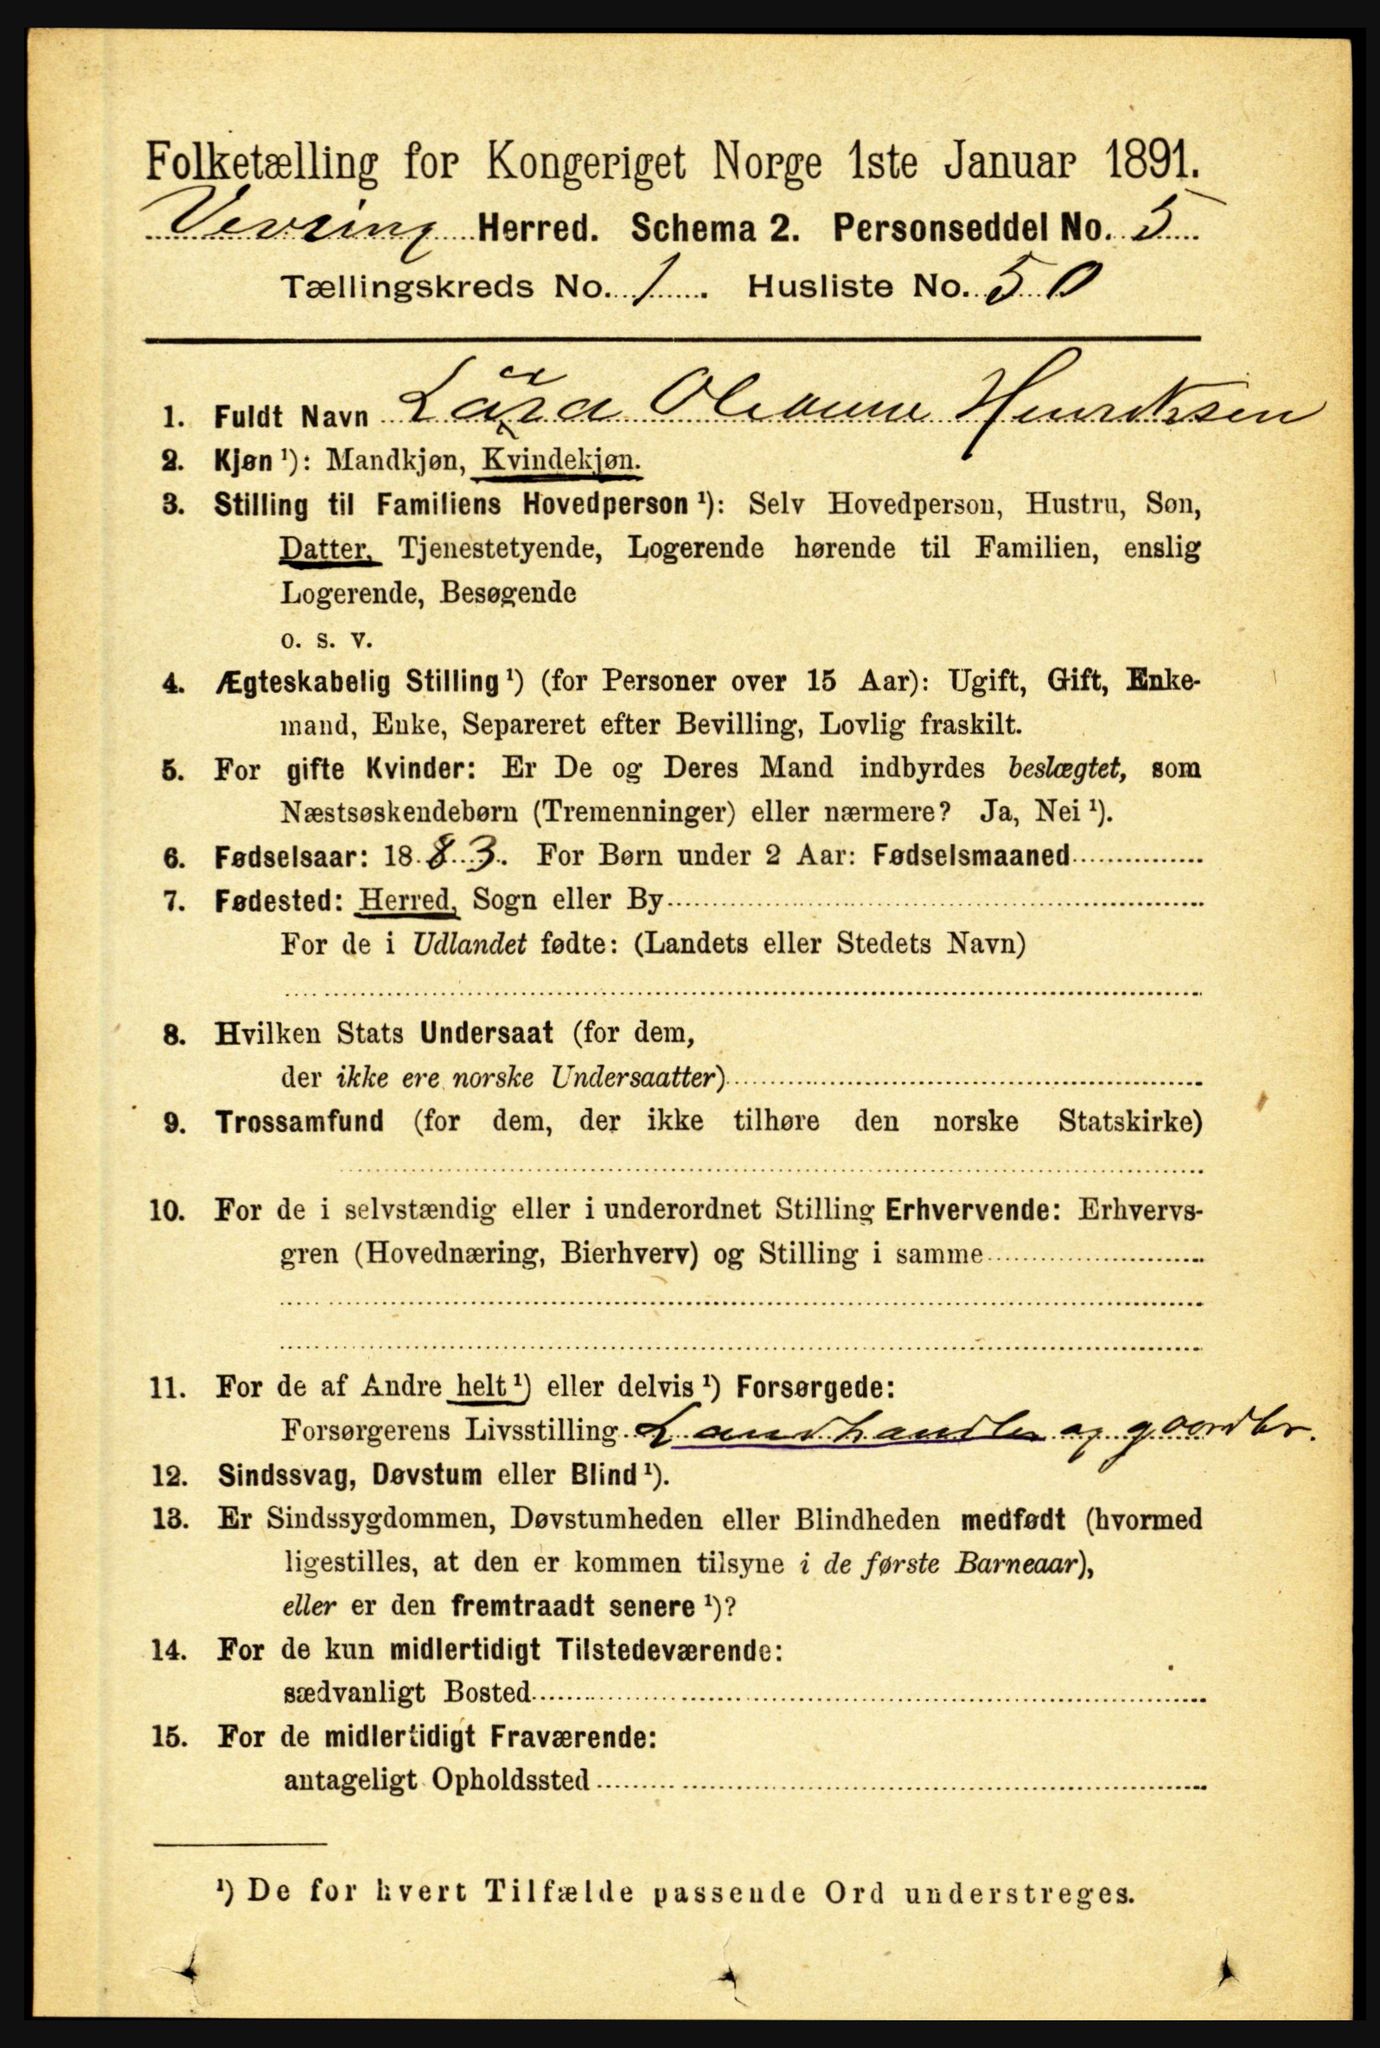 Folketælling for Kongeriget Norge 1ste Januar 1891.
Vevring Herred. Schema 2. Personseddel No. 5
Tællingskreds No. 1. Husliste No. 50
1. Fuldt Navn Lara Oleanne Henriksen
2. Kjøn ¹): Mandkjøn, Kvindekjøn.
3. Stilling til Familiens Hovedperson ¹): Selv Hovedperson, Hustru, Søn,
Datter, Tjenestetyende, Logerende hørende til Familien, enslig
Logerende, Besøgende
o. s. v.
4. Ægteskabelig Stilling ¹) (for Personer over 15 Aar): Ugift, Gift, Enke-
mand, Enke, Separeret efter Bevilling, Lovlig fraskilt.
5. For gifte Kvinder: Er De og Deres Mand indbyrdes beslægtet, som
Næstsøskendebørn (Tremenninger) eller nærmere? Ja, Nei ¹).
6. Fødselsaar: 1883. For Børn under 2 Aar: Fødselsmaaned
7. Fødested: Herred, Sogn eller By
For de i Udlandet fødte: (Landets eller Stedets Navn)
8. Hvilken Stats Undersaat (for dem,
der ikke ere norske Undersaatter)
9. Trossamfund (for dem, der ikke tilhøre den norske Statskirke)
10. For de i selvstændig eller i underordnet Stilling Erhvervende: Erhvervs-
gren (Hovednæring, Bierhverv) og Stilling i samme
11. For de af Andre helt ¹) eller delvis ¹) Forsørgede:
Forsørgerens Livsstilling Landhandler og gaardbr.
12. Sindssvag, Døvstum eller Blind ¹).
13. Er Sindssygdommen, Døvstumheden eller Blindheden medfødt (hvormed
ligestilles, at den er kommen tilsyne i de første Barneaar),
eller er den fremtraadt senere ¹)?
14. For de kun midlertidigt Tilstedeværende:
sædvanligt Bosted
15. For de midlertidigt Fraværende:
antageligt Opholdssted
¹) De for hvert Tilfælde passende Ord understreges.